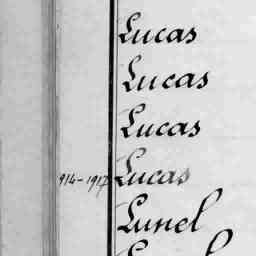 Lucas
Lucas
Lucas
914-1917 Lucas
Lunel